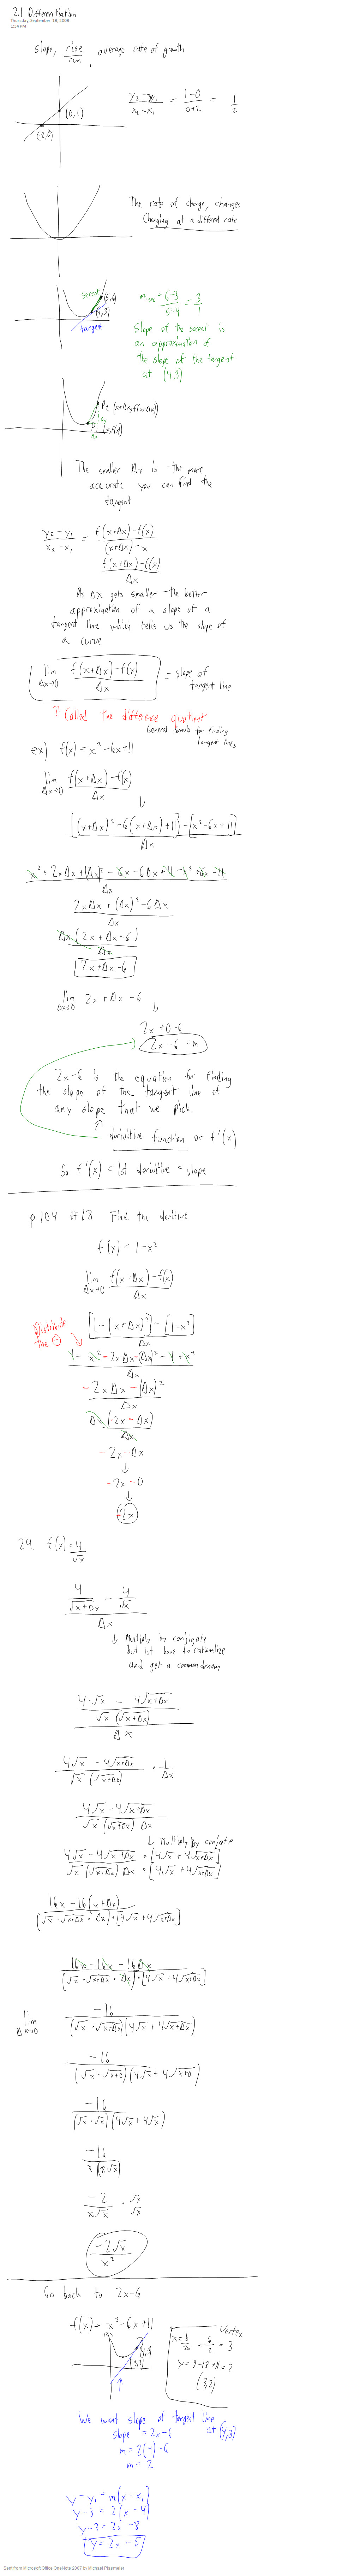 2.1 Differentiation
Thursday, September 18, 2008
1:34 PM
slope, rise/run, average rate of growth
(0,1)
(-2,0)
(y₂-y₁)/(x₂-x₁) = (1-0)/(0+2) = 1/2
The rate of change, changes
Changing at a different rate
secent
(5,6)
(4,3)
tangent
= (6-3)/(5-4) = 3/1
Slope of the secent is
an approximation of
the slope of the tangent
at (4,3)
P₂ (x+Δx, f(x+Δx))
Δy
P₁ (x, f(x))
Δx
The smaller Δx is the more
accurate you can find the
tangent
(y₂-y₁)/(x₂-x₁) = (f(x+Δx)-f(x))/((x+Δx)-x)
(f(x+Δx)-f(x))/Δx
As Δx gets smaller the better
approximation of a slope of a
tangent line which tells us the slope of
a curve
lim Δx→0 (f(x+Δx)-f(x))/Δx = slope of tangent line
↑ Called the difference quotient
General formula for finding
tangent lines
ex) f(x) = x²-6x+11
lim Δx→0 (f(x+Δx)-f(x))/Δx
↓
([(x+Δx)²-6(x+Δx)+11]-[x²-6x+11])/Δx
(x²+2xΔx+(Δx)²-6x-6Δx+11-x²+6x-11)/Δx
(2xΔx+(Δx)²-6Δx)/Δx
Δx(2x+Δx-6)/Δx
2x+Δx-6
lim Δx→0 2x+Δx-6
↓
2x+0-6
2x-6 = m
2x-6 is the equation for finding
the slope of the tangent line of
any slope that we pick.
↑
derivitive function or f'(x)
So f'(x) = 1st derivitive = slope
p 104 #18 Find the deritive
f(x) = 1-x²
lim Δx→0 (f(x+Δx)-f(x))/Δx
Distribute
the ⊖
([1-(x+Δx)²]-[1-x²])/Δx
(1-x²-2xΔx-(Δx)²-1+x²)/Δx
(-2xΔx-(Δx)²)/Δx
Δx(-2x-Δx)/Δx
-2x-Δx
↓
-2x-0
↓
-2x
24. f(x) = 4/√x
(4/√(x+Δx) - 4/√x)/Δx
↓ Multiply by conjigate
but 1st have to rationalize
and get a common denom
((4·√x - 4√(x+Δx))/(√x(√(x+Δx))))/Δx
(4√x - 4√(x+Δx))/(√x(√(x+Δx))) · 1/Δx
(4√x - 4√(x+Δx))/(√x(√(x+Δx)) Δx)
↓ Multiply by conjate
(4√x - 4√(x+Δx))/(√x(√(x+Δx)) Δx) · [4√x + 4√(x+Δx)]/[4√x + 4√(x+Δx)]
(16x-16(x+Δx))/((√x·√(x+Δx)·Δx)·[4√x+4√(x+Δx)])
(16x-16x-16Δx)/((√x·√(x+Δx)·Δx)·[4√x+4√(x+Δx)])
lim Δx→0 -16/((√x·√(x+Δx))(4√x+4√(x+Δx)))
-16/((√x·√(x+0))(4√x+4√(x+0)))
-16/((√x·√x)(4√x+4√x))
-16/(x(8√x))
-2/(x√x) · √x/√x
-2√x/x²
Go back to 2x-6
f(x) = x²-6x+11
(4,3)
(3,2)
Vertex
x = b/2a = 6/2 = 3
y = 9-18+11 = 2
(3,2)
We want slope of tangent line
at (4,3)
slope = 2x-6
m = 2(4)-6
m = 2
y-y₁ = m(x-x₁)
y-3 = 2(x-4)
y-3 = 2x-8
y = 2x-5